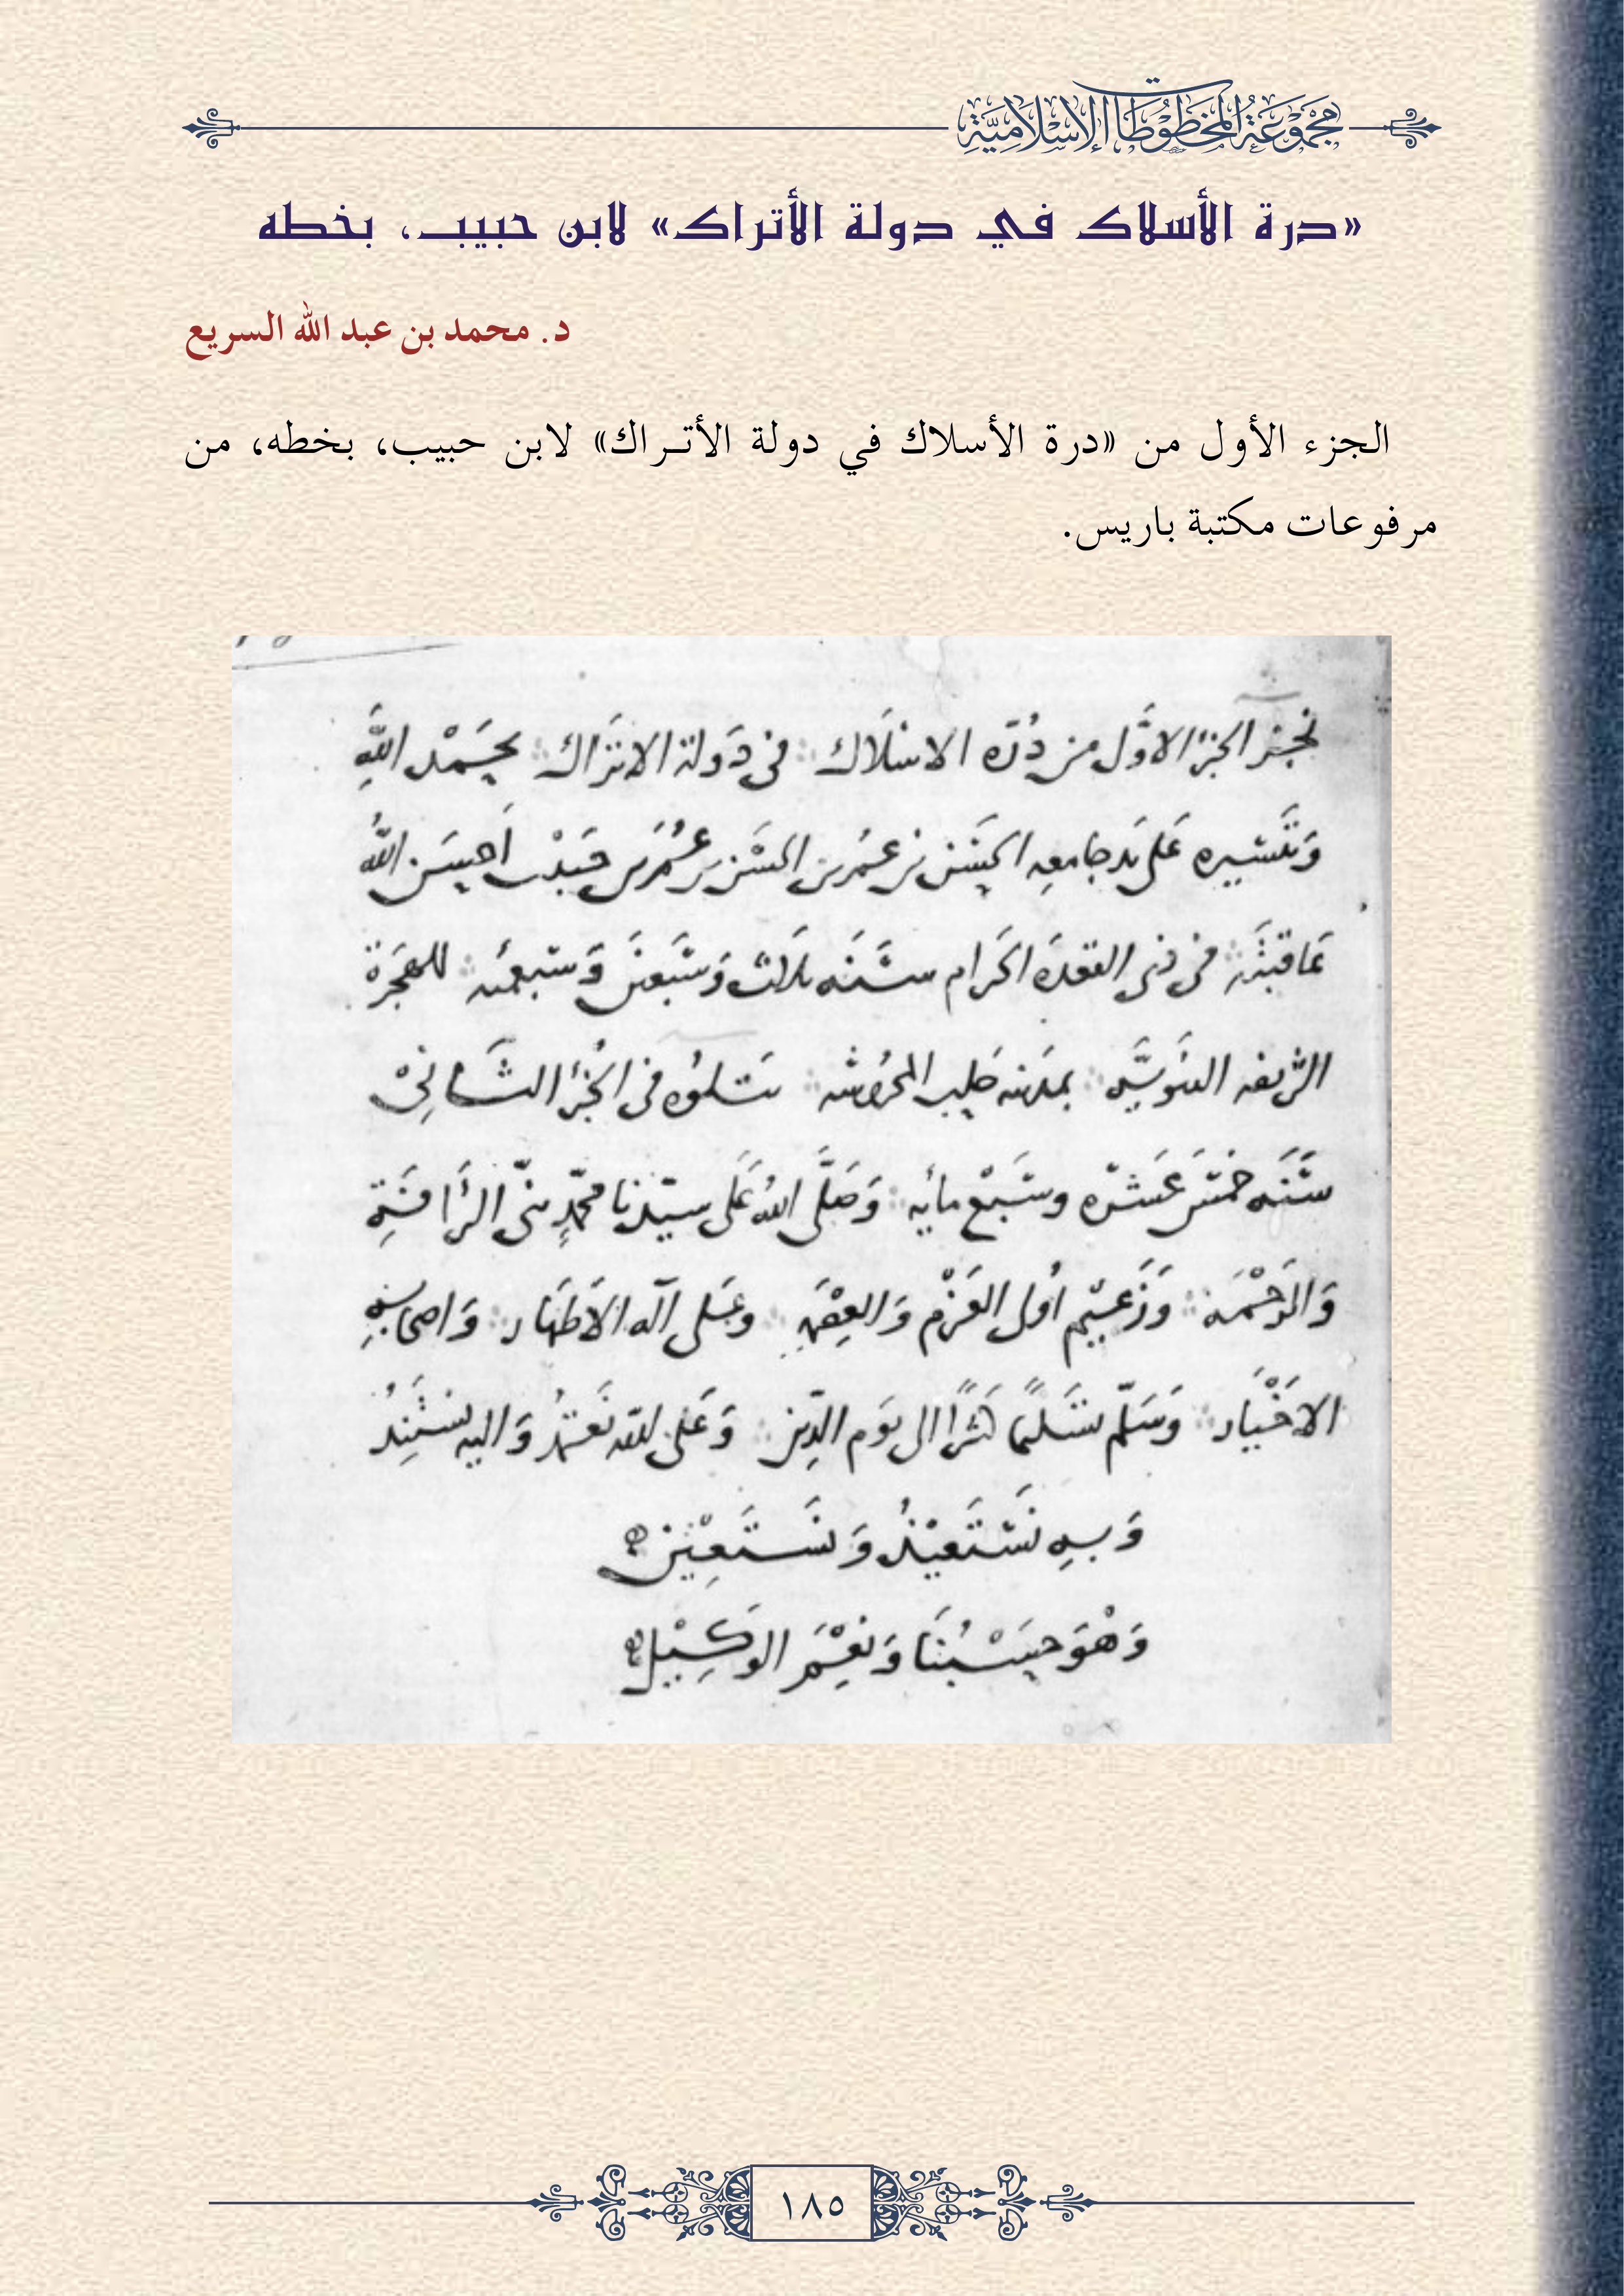 مجموعة المخطوطات الإسلامية
«درة الأسلاك في دولة الأتراك» لابن حبيب، بخطه
د. محمد بن عبد الله السريع
الجزء الأول من «درة الأسلاك في دولة الأتـراك» لابن حبيب، بخطه، من
مرفوعات مكتبة باريس.
نجز الجزء الاوَّل من دُرّه الاسلَاك في دَولة الاتَراك بحَمْد اللهِ
وَتَيسيره عَلى يَد جَامعِه الحَسَن بن عمَر بن الحسَن بن عُمَر بن حَبيْب اَحسَن الله
عَاقبتَه في ذي القعدَه الحَرام سَنَه ثلاث وَسَبعين وَسَبعمئه للهجَرة
الشريفه النبَويَّه بمدينه حَلب المحرُوسَه يَتلوُه في الجُزء الثَّانِيْ
سَنَه خمْسَ عَشرَه وسَبْع مائه وَصَلَّى اللهُ عَلى سيّدنا محمّدٍ نبيّ الرَأفَةِ
وَالرَحْمَه وَزَعيْم اُولى العَزْم وَالعِصْمَه وعَلى آله الاَطهَار وَاصحَابِهِ
الاخْيَار وَسَلّم تَسْليمًا كثيرًا الى يَوم الدِّين وَعَلى الله نَعتمدُ وَاليه نَستَنِدُ
وَبِهِ نَسْتَعيْذُ وَنَستَعِيْن
وَهْوَ حَسْبُنَا وَنِعْمَ الوَكِيْل
١٨٥